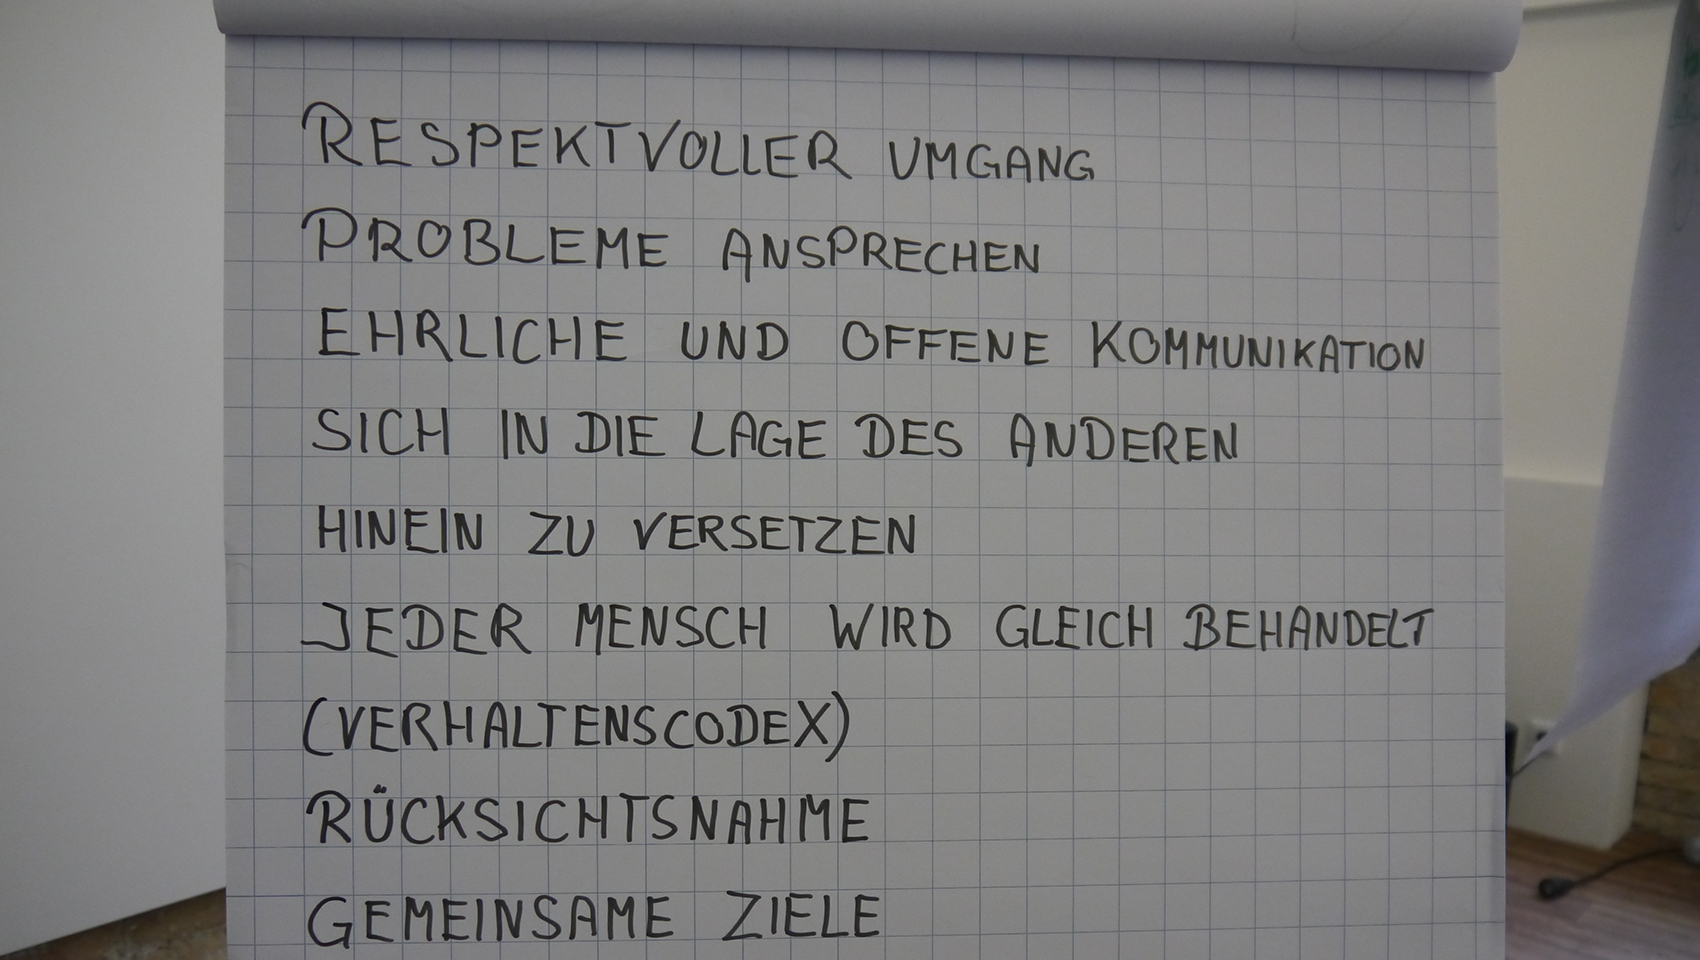 RESPEKTVOLLER UMGANG
PROBLEME ANSPRECHEN
EHRLICHE UND OFFENE KOMMUNIKATION
SICH IN DIE LAGE DES ANDEREN
HINEIN ZU VERSETZEN
JEDER MENSCH WIRD GLEICH BEHANDELT
(VERHALTENSCODEX)
RÜCKSICHTSNAHME
GEMEINSAME ZIELE